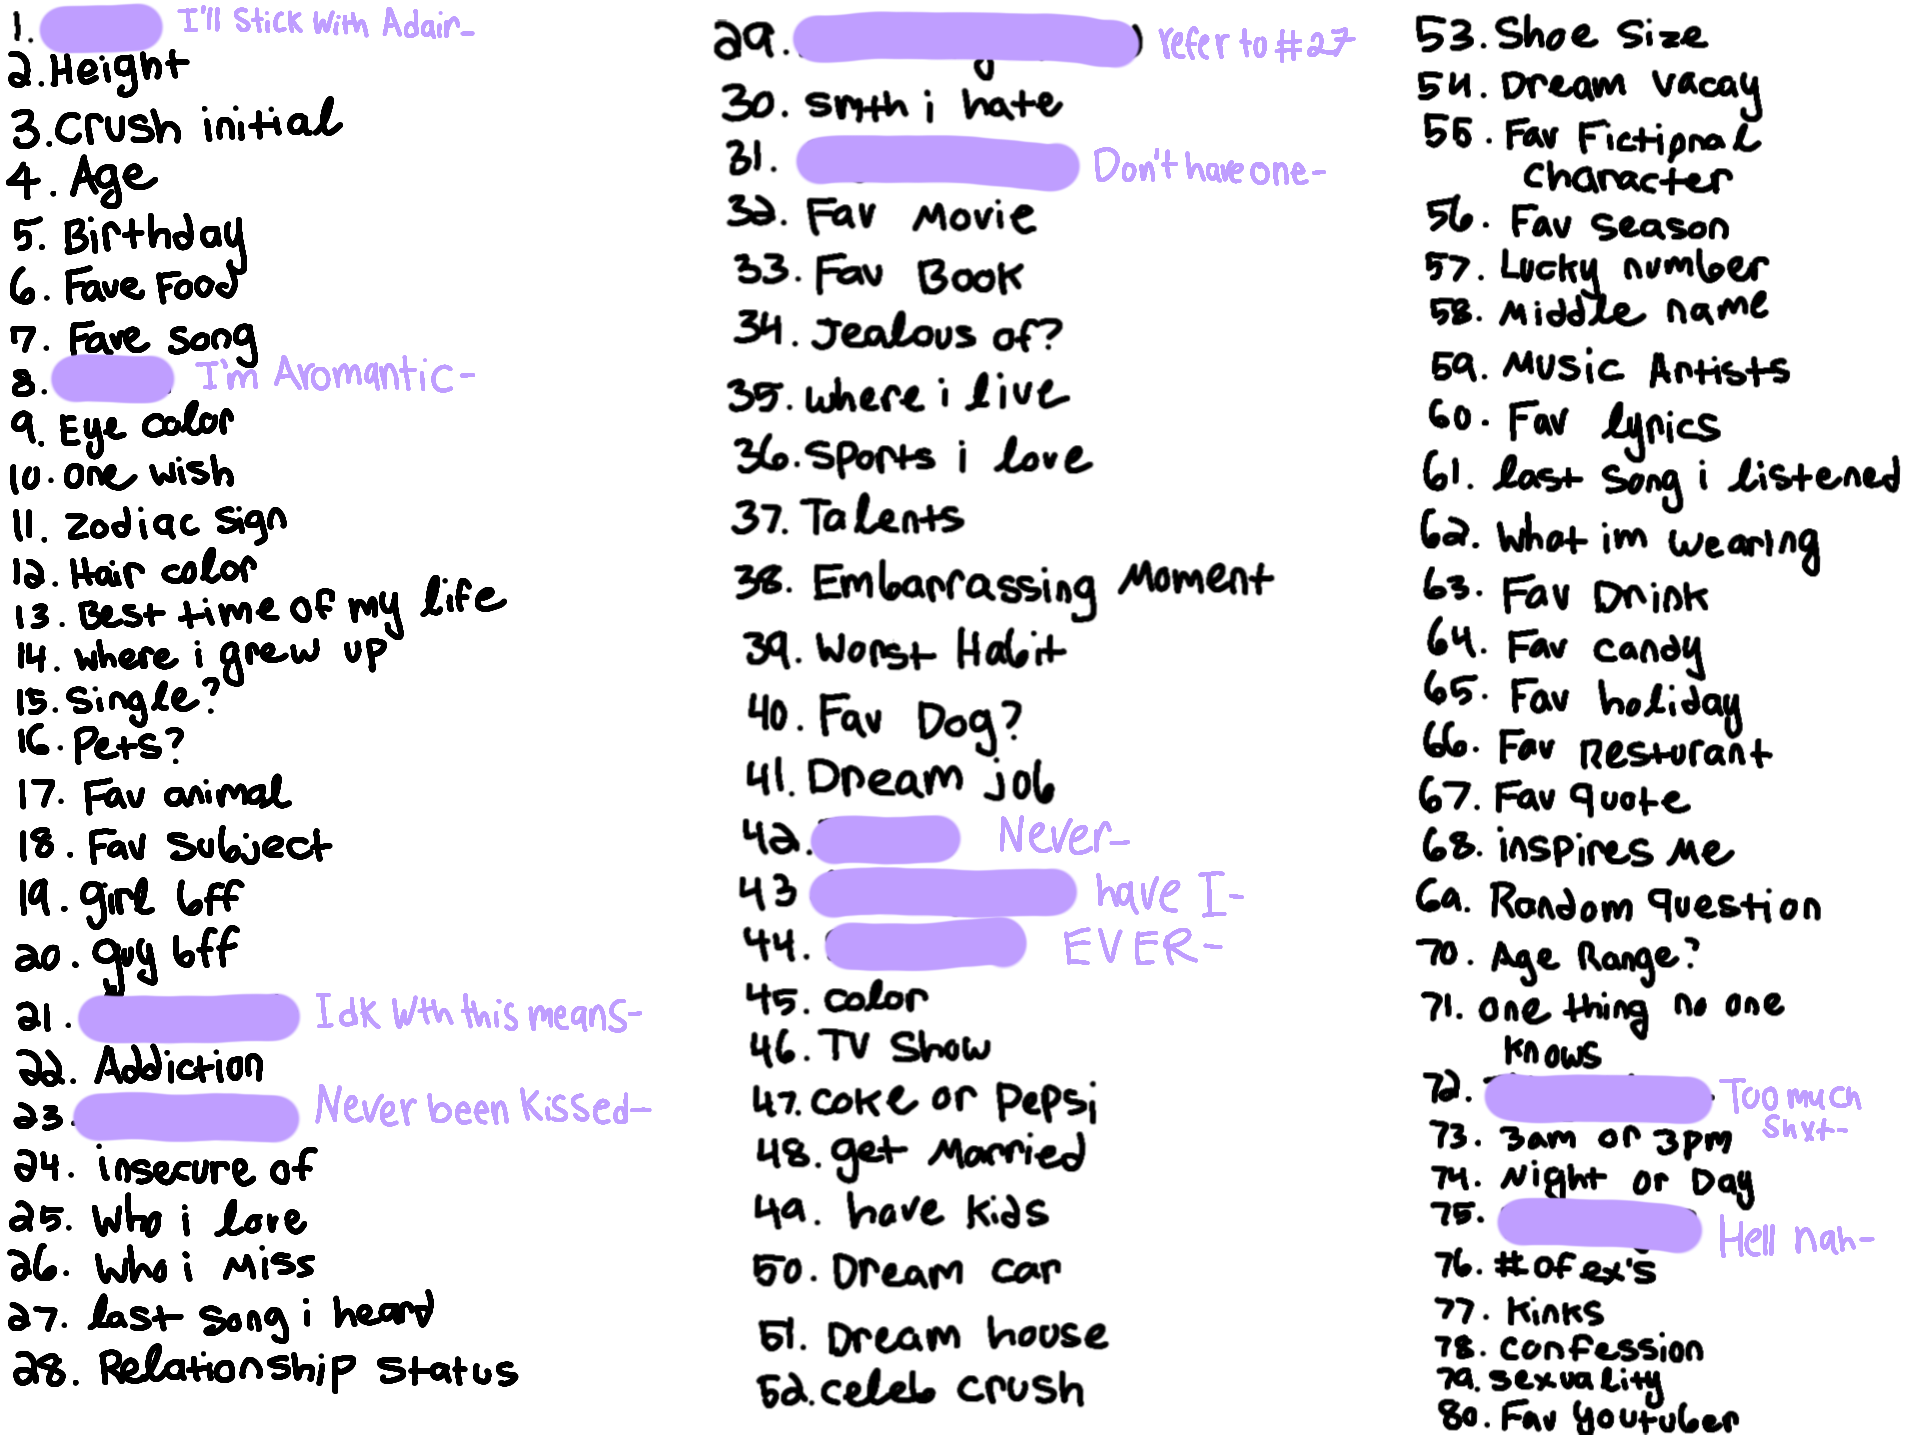 1. I'll Stick With Adair-
2. Height
3. Crush initial
4. Age
5. Birthday
6. Fave Food
7. Fave song
8. I'm Aromantic-
9. Eye color
10. one wish
11. Zodiac Sign
12. Hair color
13. Best time of my life
14. where i grew up
15. Single?
16. Pets?
17. Fav animal
18. Fav Subject
19. girl bff
20. guy bff
21. Idk Wth this means-
22. Addiction
23. Never been Kissed-
24. insecure of
25. Who i love
26. Who i Miss
27. last song i heard
28. Relationship Status
29. refer to #27
30. smth i hate
31. Don't have one-
32. Fav Movie
33. Fav Book
34. Jealous of?
35. where i live
36. Sports i love
37. Talents
38. Embarrassing Moment
39. Worst Habit
40. Fav Dog?
41. Dream job
42. Never-
43 have I-
44. EVER-
45. color
46. TV Show
47. Coke or Pepsi
48. get Married
49. have kids
50. Dream car
51. Dream house
52. celeb crush
53. Shoe Size
54. Dream vacay
55. Fav Fictional
character
56. Fav season
57. Lucky number
58. Middle name
59. Music Artists
60. Fav lyrics
61. last song i listened
62. What im wearing
63. Fav Drink
64. Fav candy
65. Fav holiday
66. Fav Resturant
67. Fav quote
68. inspires Me
69. Random question
70. Age Range?
71. one thing no one
knows
72. Too much
Shxt-
73. 3am or 3pm
74. Night or Day
75. Hell nah-
76. # of ex's
77. Kinks
78. confession
79. sexuality
80. Fav Youtuber